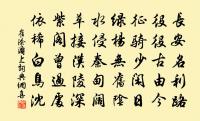 長安名利路
役役古由今
征騎少閒日
綠楊無舊陰
水侵秦甸闊
草接漢陵深
紫閣曾過處
依稀白鳥沈
崔塗灞上詞典網書